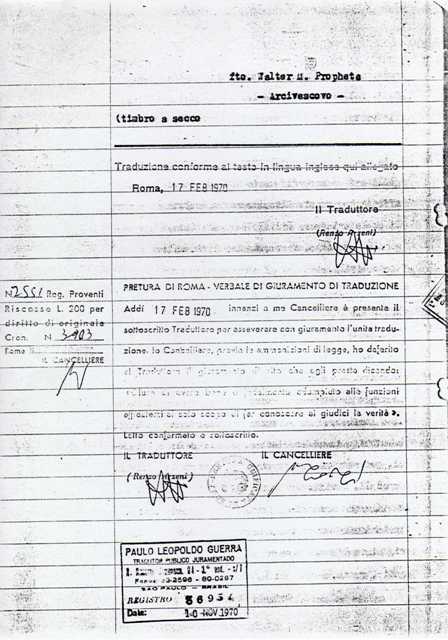 fto. Walter M. Propheta
- Arcivescovo -
(timbro a secco
Traduzione conforme al testo in lingua inglese qui allegato
Roma, 17 FEB 1970
Il Traduttore
(Renzo Arzeni)
N 2551 Reg. Proventi
Riscosse L. 200 per
diritto di originale
Cron. N 3903
Roma li
IL CANCELLIERE
PRETURA DI ROMA - VERBALE DI GIURAMENTO DI TRADUZIONE
Addì 17 FEB 1970 innanzi a me Cancelliere è presente il
sottoscritto Traduttore per asseverare con giuramento l'unita tradu-
zione. Io Cancelliere, previe le ammonizioni di legge, ho deferito
al Traduttore il giuramento di rito che egli presta dicendo:
di avere bene e fedelmente adempiuto alle funzioni
al solo scopo di far conoscere ai giudici la verità ».
Letto confermato e sottoscritto.
IL TRADUTTORE IL CANCELLIERE
(Renzo Arzeni)
PAULO LEOPOLDO GUERRA
TRADUTOR PÚBLICO JURAMENTADO
SÃO PAULO - BRASIL
REGISTRO 56954
Data: 10 NOV. 1970